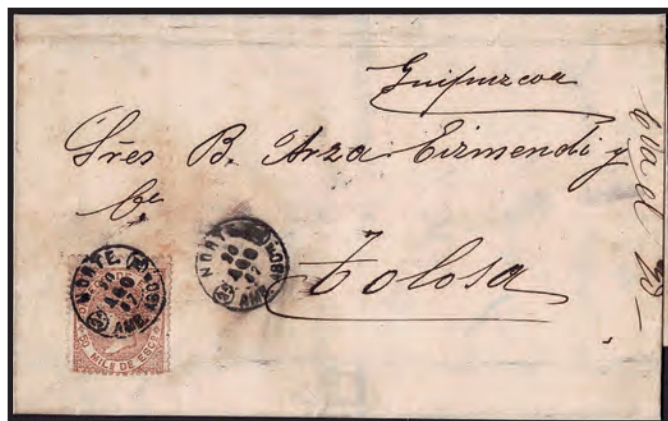 Guipuzcoa
Sres B. Arza Eizmendi y
Cª
Tolosa
NORTE
30
AGO
67
AMB.
NORTE
30
AGO
67
AMB.
50 MILS DE ESCO